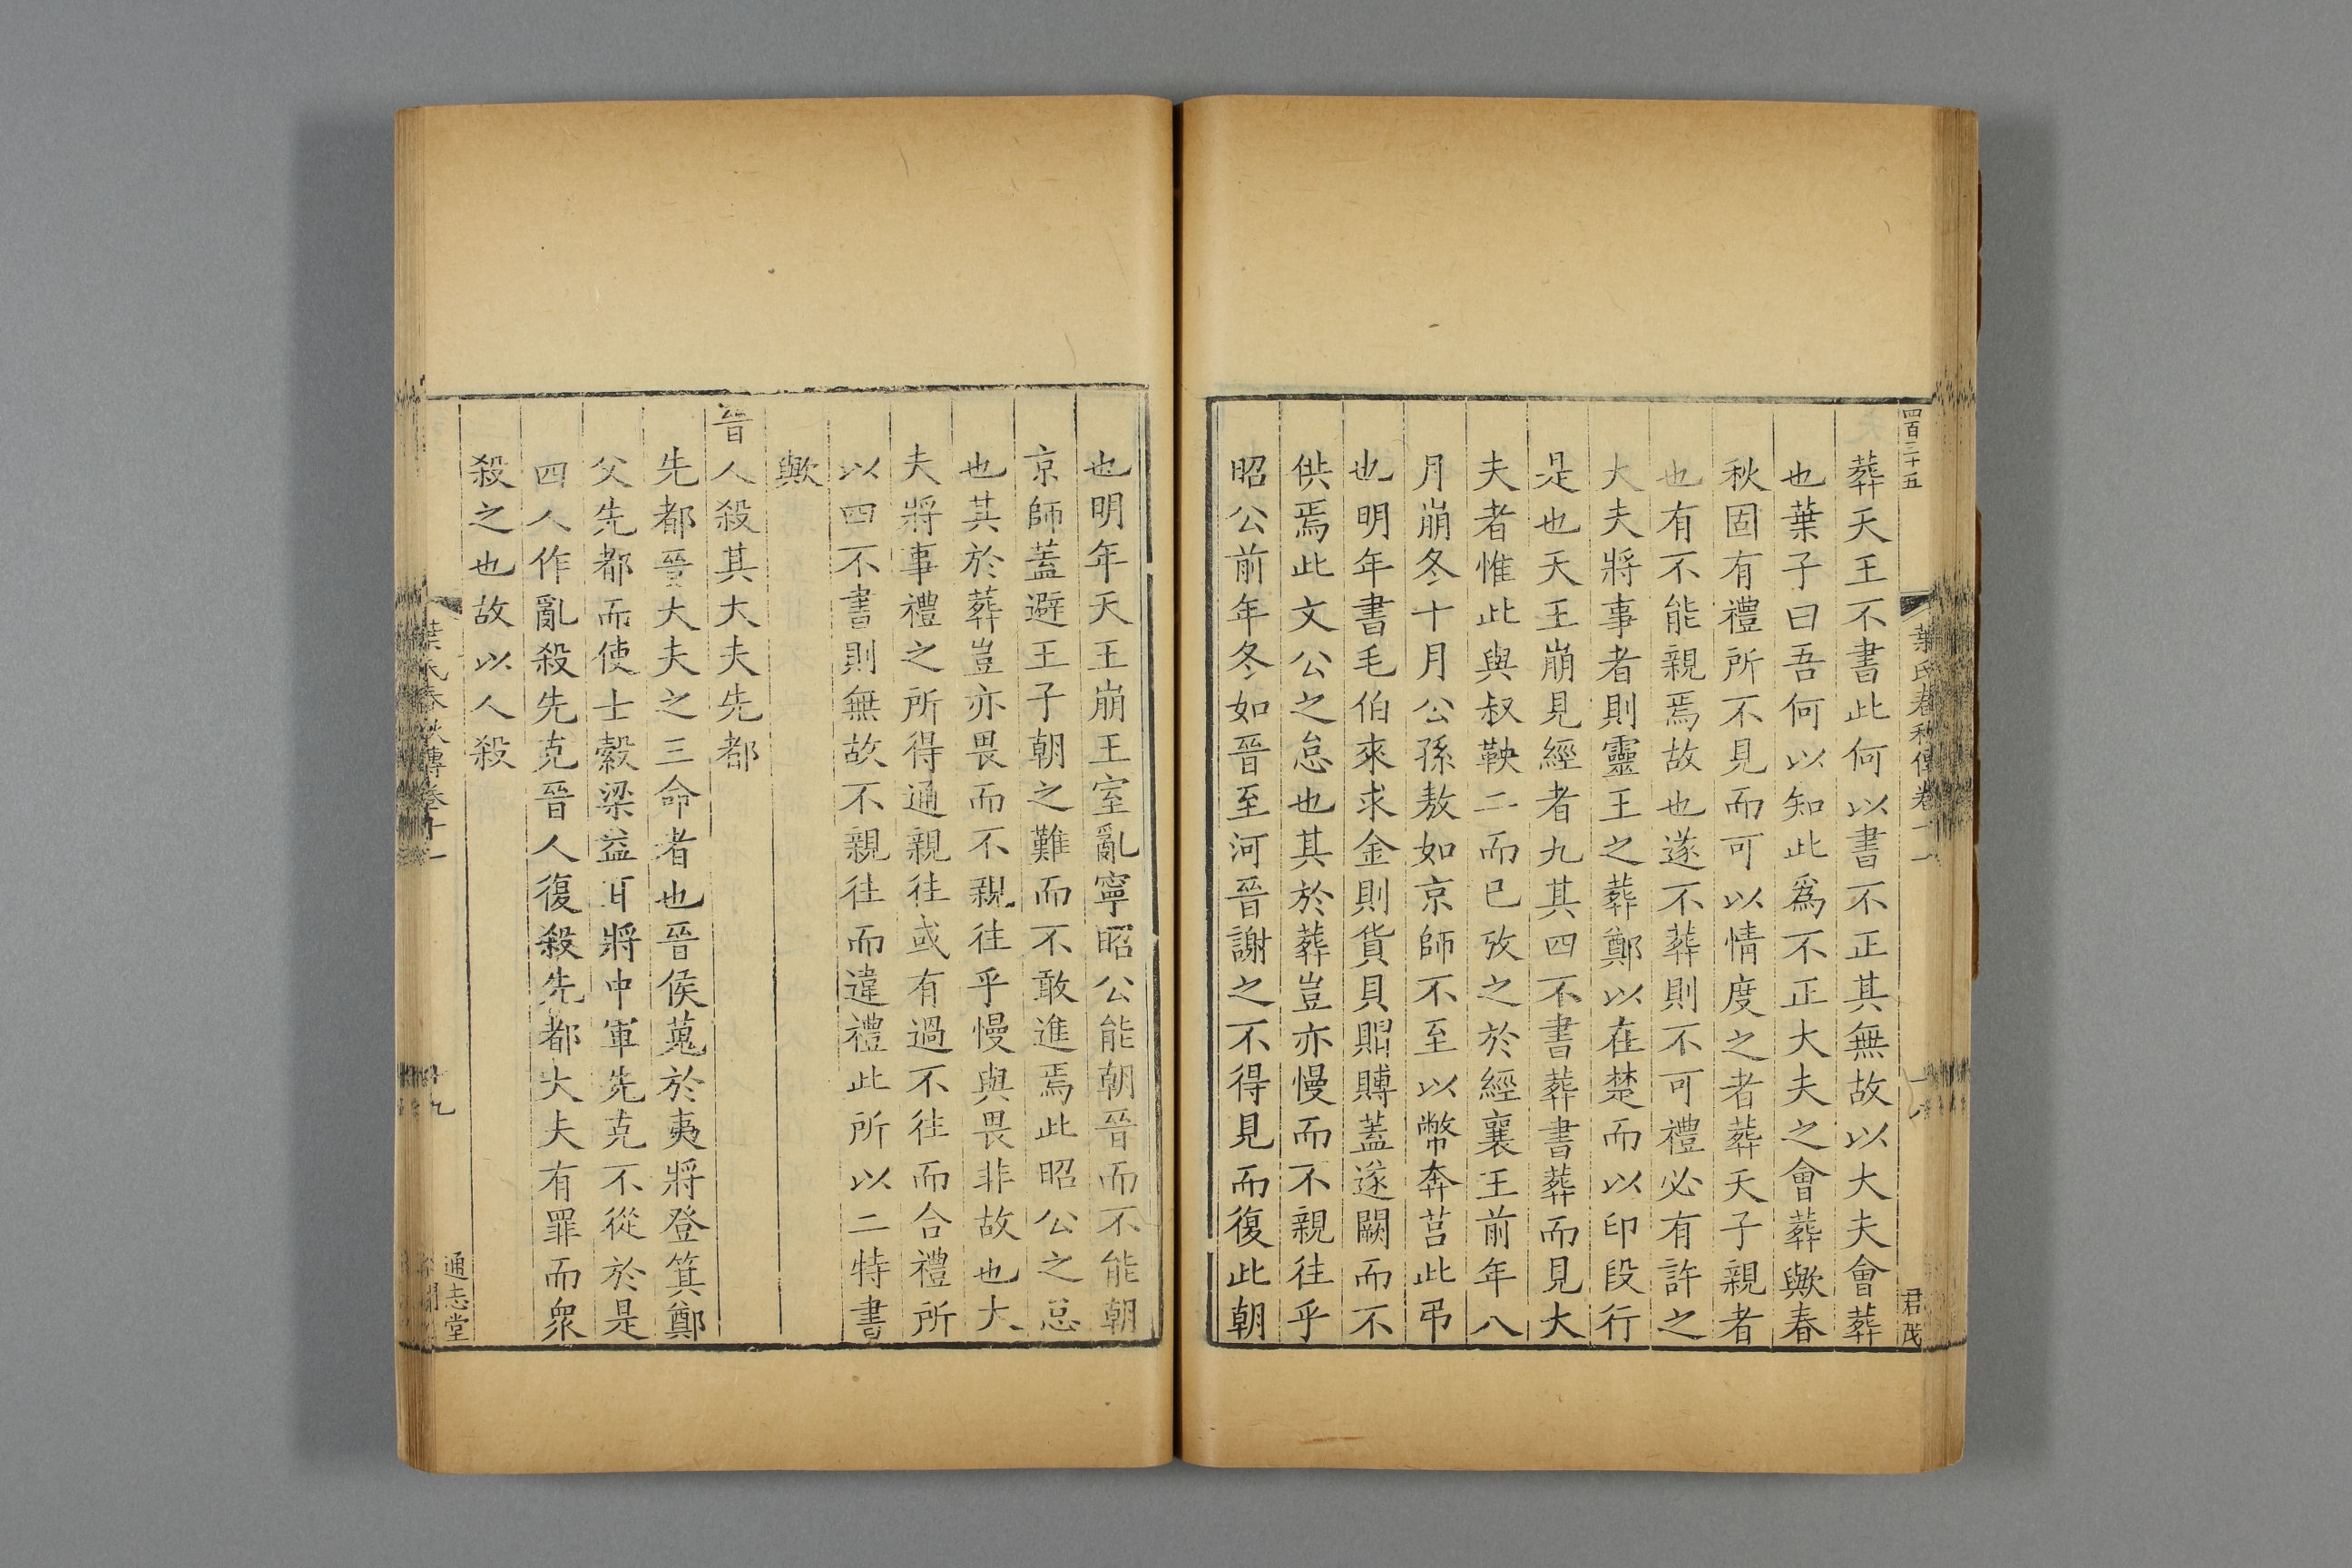 四百三十五
葉氏春秋傳卷十一
十八
君茂
葬天王不書此何以書不正其無故以大夫會葬
也葉子曰吾何以知此爲不正大夫之會葬歟春
秋固有禮所不見而可以情度之者葬天子親者
也有不能親焉故也遂不葬則不可禮必有許之
大夫將事者則靈王之葬鄭以在楚而以印段行
是也天王崩見經者九其四不書葬書葬而見大
夫者惟此與叔鞅二而已攷之於經襄王前年八
月崩冬十月公孫敖如京師不至以幣奔莒此弔
也明年書毛伯來求金則貨貝賵賻蓋遂闕而不
供焉此文公之怠也其於葬豈亦慢而不親往乎
昭公前年冬如晉至河晉謝之不得見而復此朝
也明年天王崩王室亂寧昭公能朝晉而不能朝
京師蓋避王子朝之難而不敢進焉此昭公之忌
也其於葬豈亦畏而不親往乎慢與畏非故也大
夫將事禮之所得通親往或有過不往而合禮所
以四不書則無故不親往而違禮此所以二特書
歟
晉人殺其大夫先都
先都晉大夫之三命者也晉侯蒐於夷將登箕鄭
父先都而使士縠梁益耳將中軍先克不從於是
四人作亂殺先克晉人復殺先都大夫有罪而衆
殺之也故以人殺
葉氏春秋傳卷十一
十九
通志堂